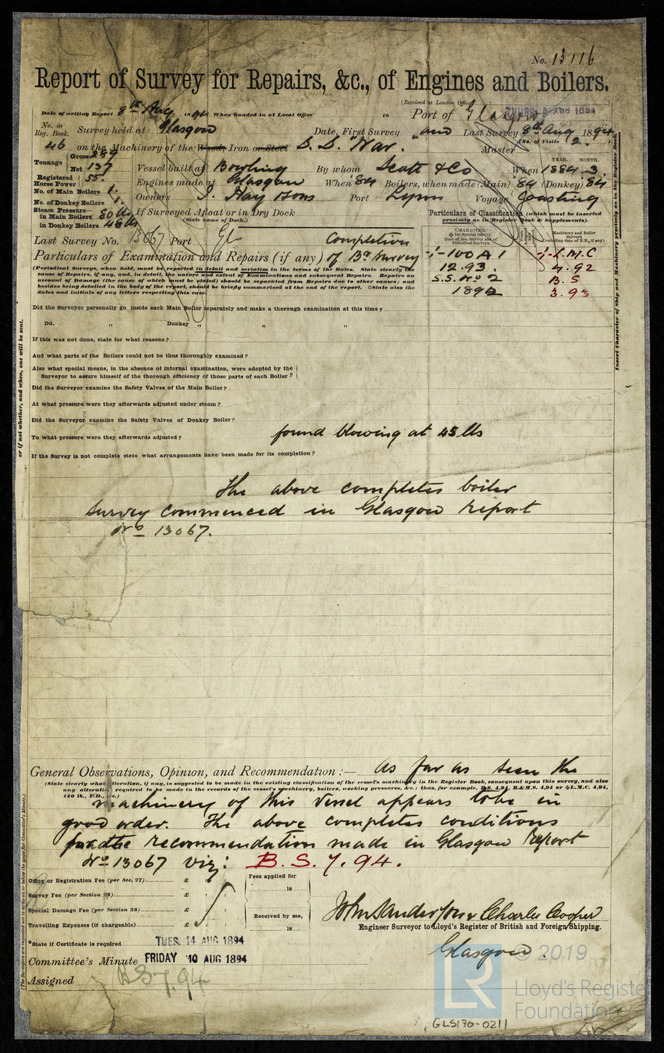 No. 13116
Report of Survey for Repairs, &c., of Engines and Boilers.
(Received at London Office
Date of writing Report 8th Aug 1894 When handed in at Local Office 18 Port of Glasgow
No. in Reg. Book. Survey held at Glasgow Date, First Survey and Last Survey 8th Aug 1894
(No. of Visits 2.)
46 on the Machinery of the Wood, Iron or Steel S.S. "Nar." Master
Tonnage Gross 289 Net 137 Vessel built at Bowling By whom Scott & Co When 1884 YEAR. MONTH. 3
Registered Horse Power 55 Engines made at Glasgow When '84 Boilers, when made (Main) 84 (Donkey) 84
No. of Main Boilers 1. Owners J. Hay & Sons Port Lynn Voyage Coasting
No. of Donkey Boilers 1.
Steam Pressure in Main Boilers 80 lbs If Surveyed Afloat or in Dry Dock
(State name of Dock.)
in Donkey Boilers 45 lbs
Particulars of Classification (which must be inserted precisely as in Register Book & Supplements).
Last Survey No. 13067 Port Gl
Particulars of Examination and Repairs (if any) Completion of Bs Survey
100 A 1 L.M.C
12.93. 4.92
S.S. No 2 B.S
1892 3.93
Did the Surveyor personally go inside each Main Boiler separately and make a thorough examination at this time?
Do. Donkey " " " "
If this was not done, state for what reasons?
And what parts of the Boilers could not be thus thoroughly examined?
Also what special means, in the absence of internal examination, were adopted by the Surveyor to assure himself of the thorough efficiency of those parts of each Boiler?
Did the Surveyor examine the Safety Valves of the Main Boiler?
At what pressure were they afterwards adjusted under steam?
Did the Surveyor examine the Safety Valves of Donkey Boiler?
To what pressure were they afterwards adjusted? found blowing at 45 lbs
If the Survey is not complete state what arrangements have been made for its completion?
The above completes boiler
survey commenced in Glasgow Report
No 13067.
General Observations, Opinion, and Recommendation:— As far as seen the
(State clearly what alteration, if any, is suggested to be made in the existing classification of the vessel's machinery in the Register Book, consequent upon this survey, and also
machinery of this vessel appears to be in
good order. The above completes conditions
for the recommendation made in Glasgow Report
No 13067 viz: B.S. 7. 94.
Office or Registration Fee (per Sec. 27) £ Fees applied for
18
Survey Fee (per Section 28) £
Special Damage Fee (per Section 28) £ Received by me,
Travelling Expenses (if chargeable) £ 18
John Sanderson & Charles Cooper
Engineer Surveyor to Lloyd's Register of British and Foreign Shipping.
*State if Certificate is required
TUES. 14 AUG 1894
Glasgow.
Committee's Minute FRIDAY 10 AUG 1894
Assigned BS 7.94
© 2019
LR
Lloyd's Register
Foundation
GLS170-0211